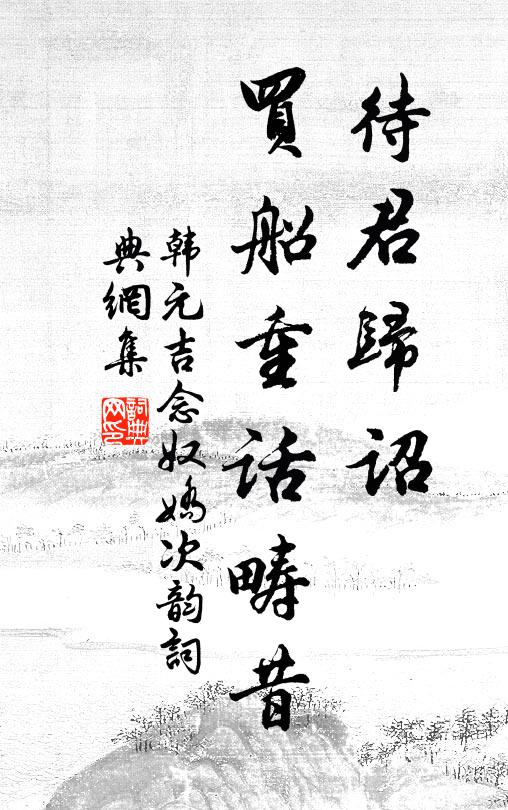 待君歸詔
買船重话疇昔
韩元吉念奴嬌次韵詞
典網集
詞典网印